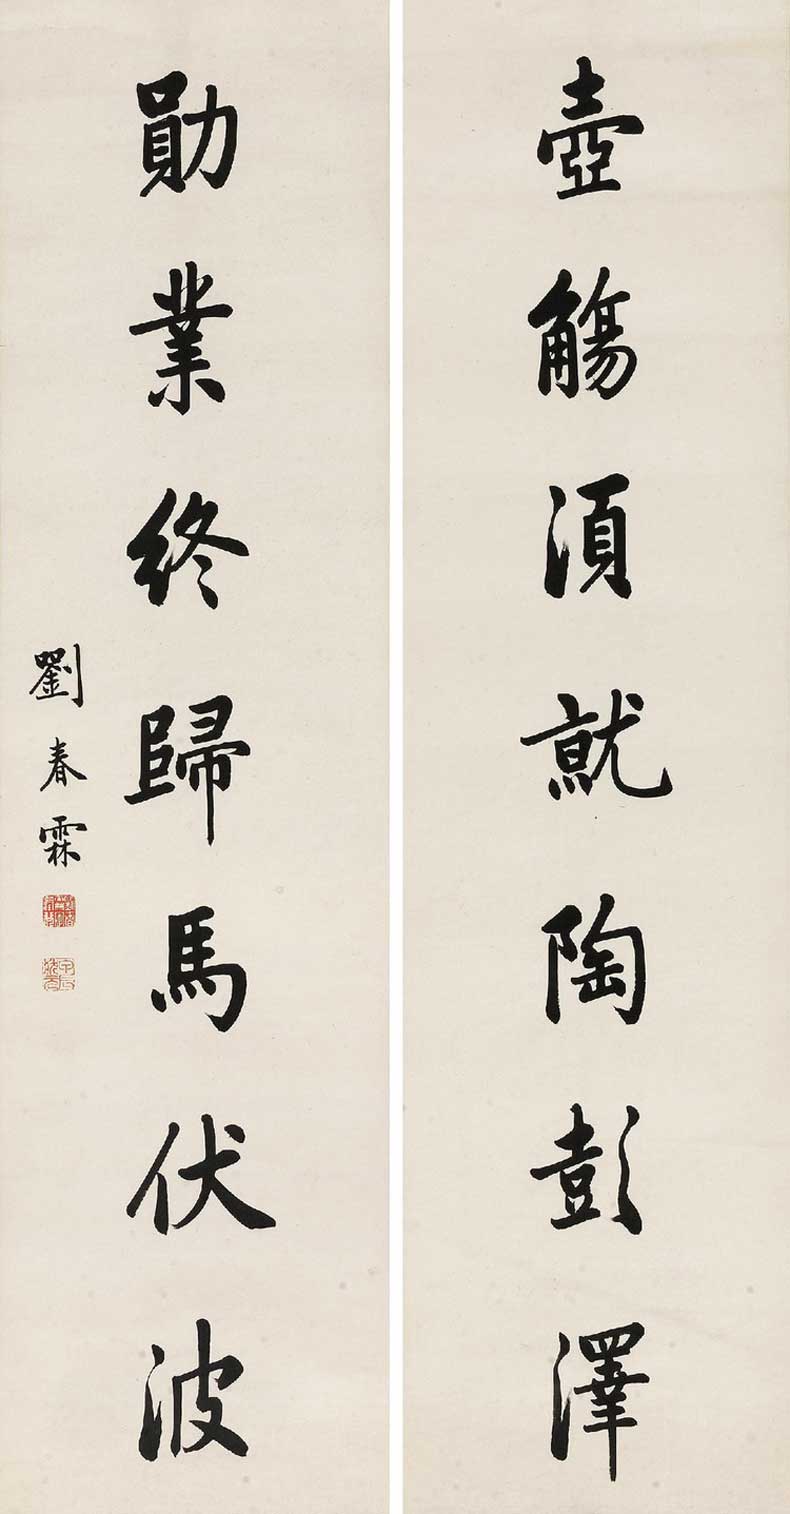 壺觴須就陶彭澤
勛業終歸馬伏波
劉春霖